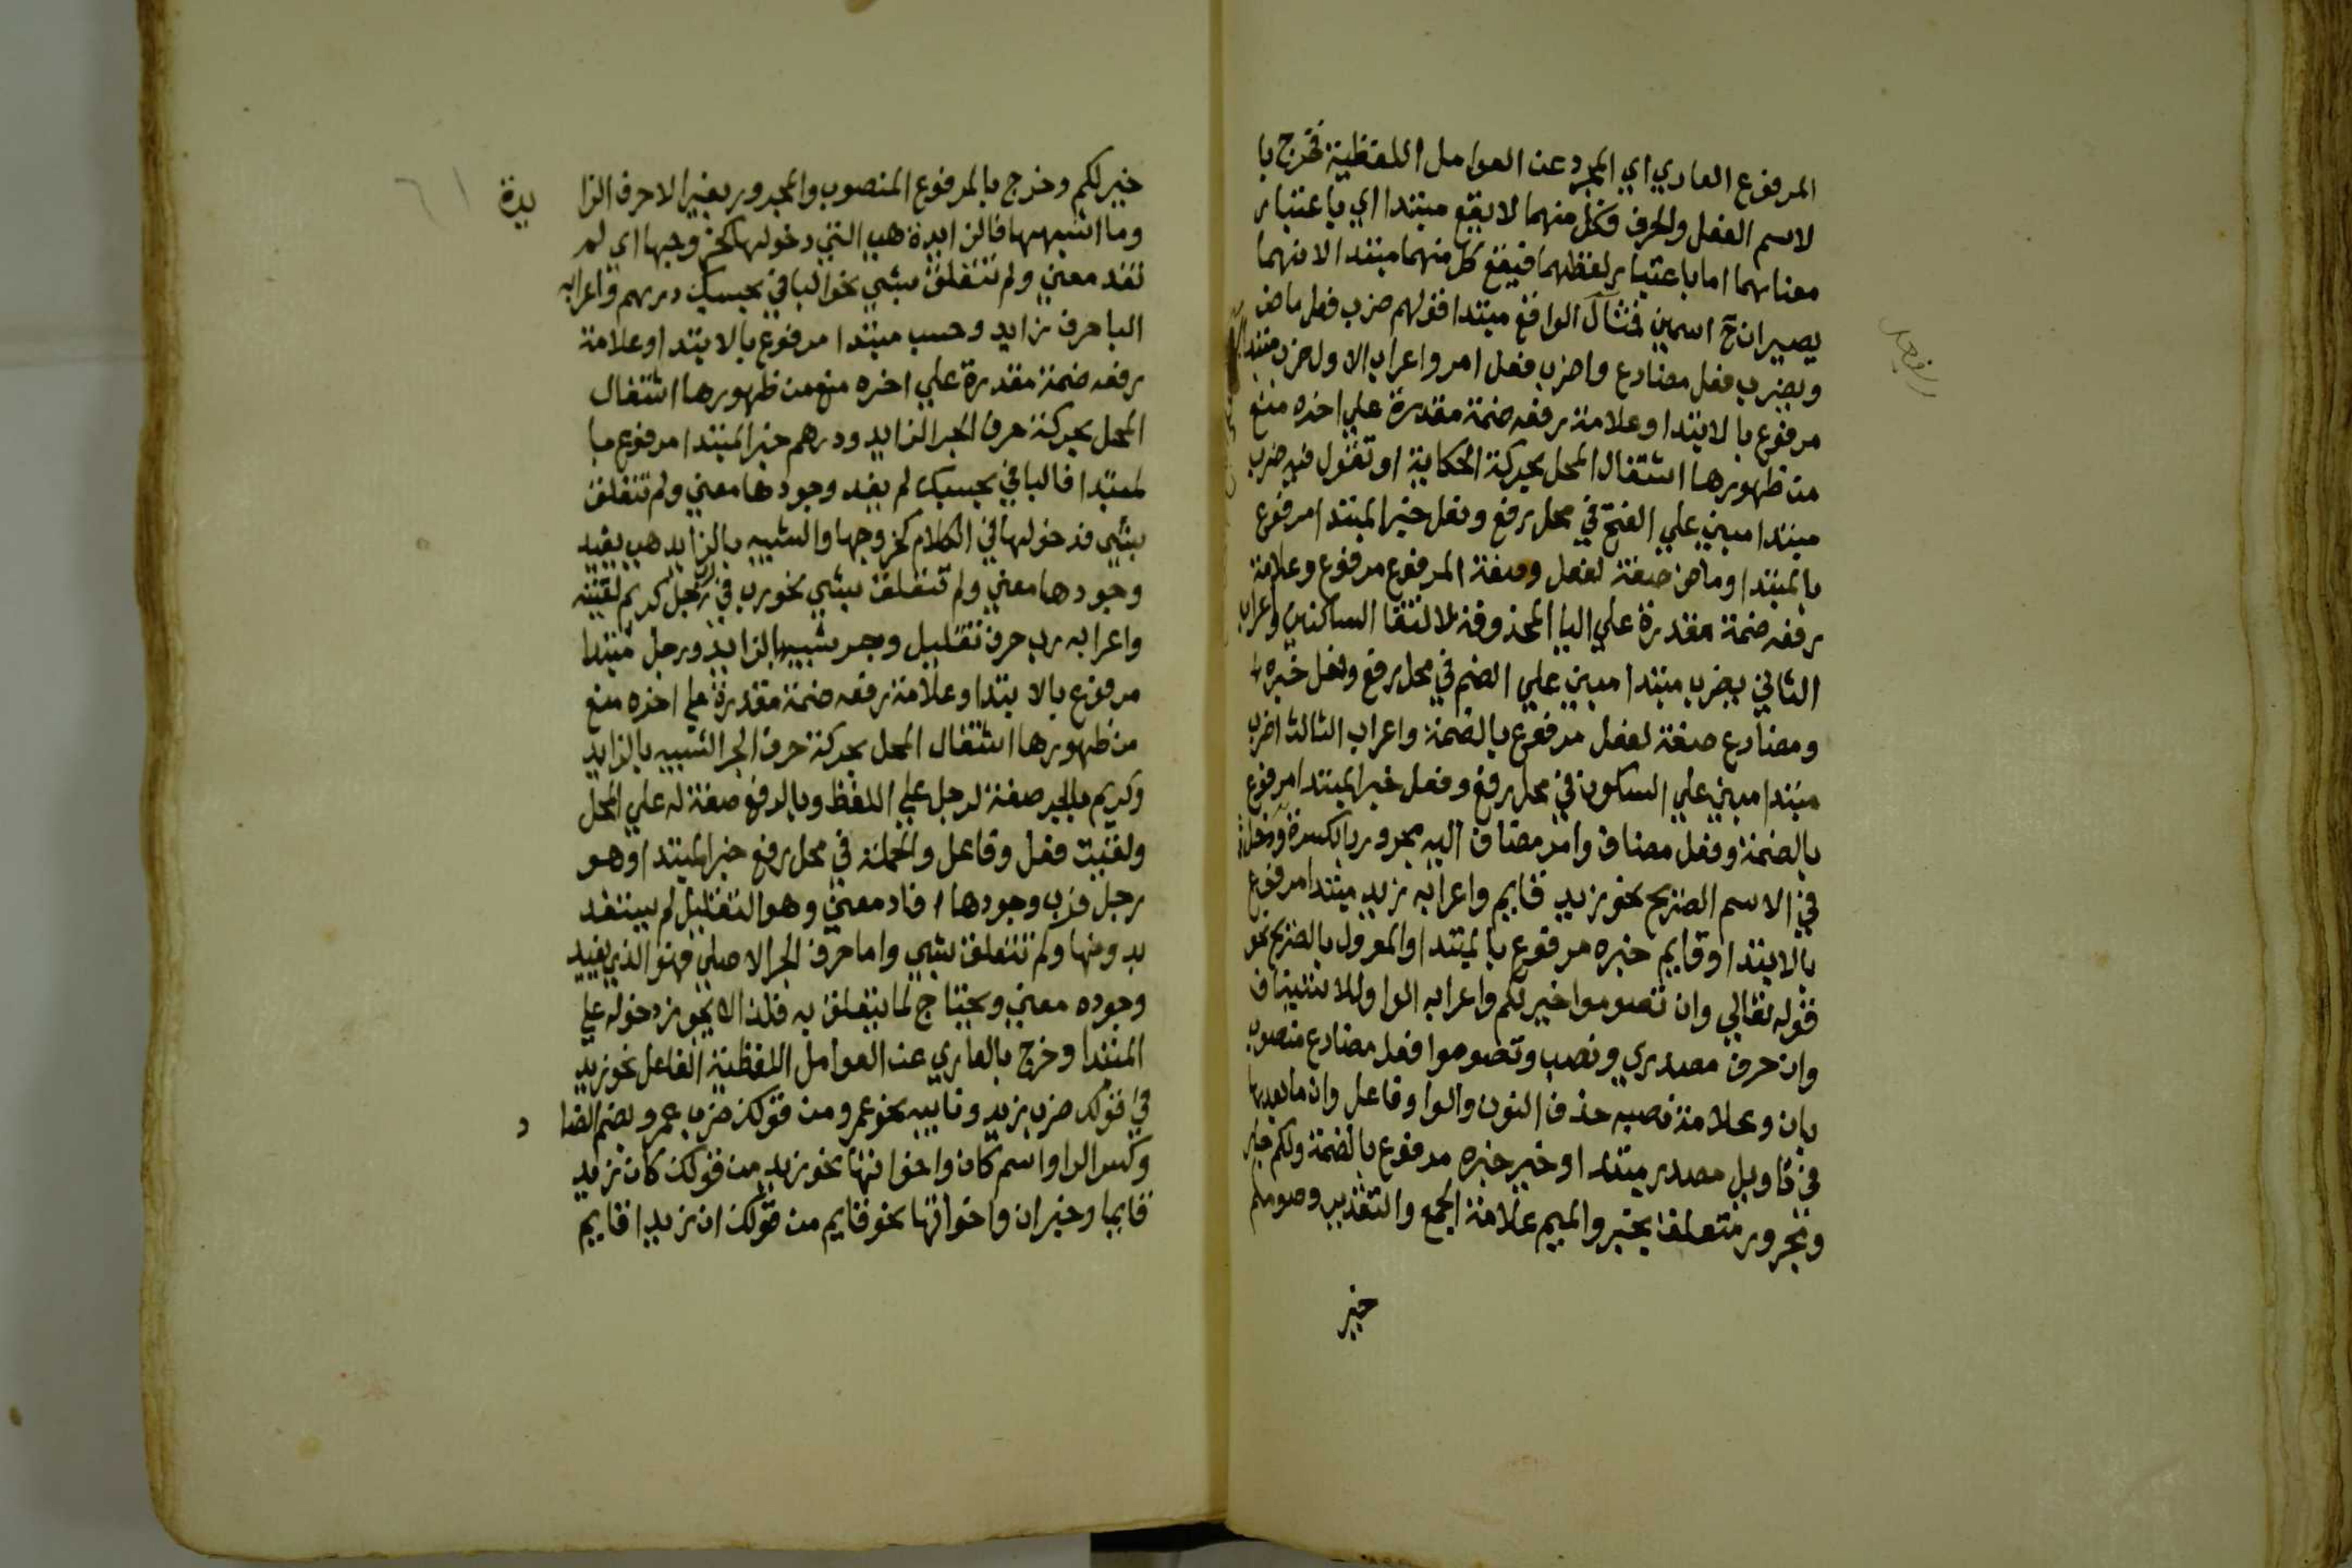 المرفوع العاري اي المجرد عن العوامل اللفظية فخرج با
لاسم الفعل والحرف فكل منهما لا يقع مبتدا اي باعتبار
معناهما اما باعتبار لفظهما فيقع كل منهما مبتدا لانهما
يصيران ح اسمين فمثال الواقع مبتدا قولهم ضرب فعل ماض
ويضرب فعل مضارع واضرب فعل امر واعراب الاول ضرب مبتدا
مرفوع بالابتدا وعلامة رفعه ضمة مقدرة علي اخره منع
من ظهورها اشتغال المحل بحركة الحكاية او تقول فيه ضرب
مبتدا مبني علي الفتح في محل رفع وفعل خبر المبتدا مرفوع
بالمبتدا وماض صفة لفعل وصفة المرفوع مرفوع وعلامة
رفعه ضمة مقدرة علي اليا المحذوفة لالتقا الساكنين واعراب
الثاني يضرب مبتدا مبني علي الضم في محل رفع وفعل خبره
ومضارع صفة لفعل مرفوع بالضمة واعراب الثالث اضرب
مبتدا مبني علي السكون في محل رفع وفعل خبر المبتدا مرفوع
بالضمة وفعل مضاف وامر مضاف اليه مجرور بالكسرة ودخل
في الاسم الصريح نحو زيد قايم واعرابه زيد مبتدا مرفوع
بالابتدا وقايم خبره مرفوع بالمبتدا والمعرول بالصريح نحو
قوله تعالي وان تصوموا خير لكم واعرابه الواو للاستيناف
وان حرف مصدري ونصب وتصوموا فعل مضارع منصوب
بان وعلامة نصبه حذف النون والواو فاعل وان ما بعدها
في تاويل مصدر مبتدا وخبر خبره مرفوع بالضمة ولكم جار
ومجرور متعلق بخير والميم علامة الجمع والتقدير وصومكم
خير
خير لكم وخرج بالمرفوع المنصوب والمجرور بغير الاحرف الزا يدة
وما اشبهها فالزايدة هي التي دخولها كخروجها اي لم
تفد معني ولم تتعلق بشي نحو البا في بحسبك درهم واعرابه
البا حرف زايد وحسب مبتدا مرفوع بالابتدا وعلامة
رفعه ضمة مقدرة علي اخره منع من ظهورها اشتغال
المحل بحركة حرف الجر الزايد ودرهم خبر المبتدا مرفوع با
لمبتدا فالبا في بحسبك لم يفد وجودها معني ولم تتعلق
بشي فدخولها في الكلام كخروجها والشبيه بالزايد هي يفيد
وجودها معني ولم تتعلق بشي نحو رب في رب رجل كريم لقيته
واعرابه رب حرف تقليل وجر شبيه بالزايد ورجل مبتدا
مرفوع بالابتدا وعلامة رفعه ضمة مقدرة علي اخره منع
من ظهورها اشتغال المحل بحركة حرف الجر الشبيه بالزايد
وكريم بالجر صفة لرجل علي اللفظ وبالرفع صفة له علي المحل
ولقيت فعل وفاعل والجملة في محل رفع خبر المبتدا وهو
رجل فرب وجودها افاد معني وهو التقليل لم يستفد
بدونها ولم تتعلق بشي واما حرف الجر الاصلي فهو الذي يفيد
وجوده معني ويحتاج لما يتعلق به فلذا لا يجوز دخوله علي
المبتدا وخرج بالعاري عن العوامل اللفظية الفاعل نحو زيد
في قولك ضرب زيد ونايبه نحو عمرو من قولك ضرب عمرو بضم الضا د
وكسر الراواسم كان واخواتها نحو زيد من قولك كان زيد
قايما وخبر ان واخواتها نحو قايم من قولك ان زيدا قايم
٦١